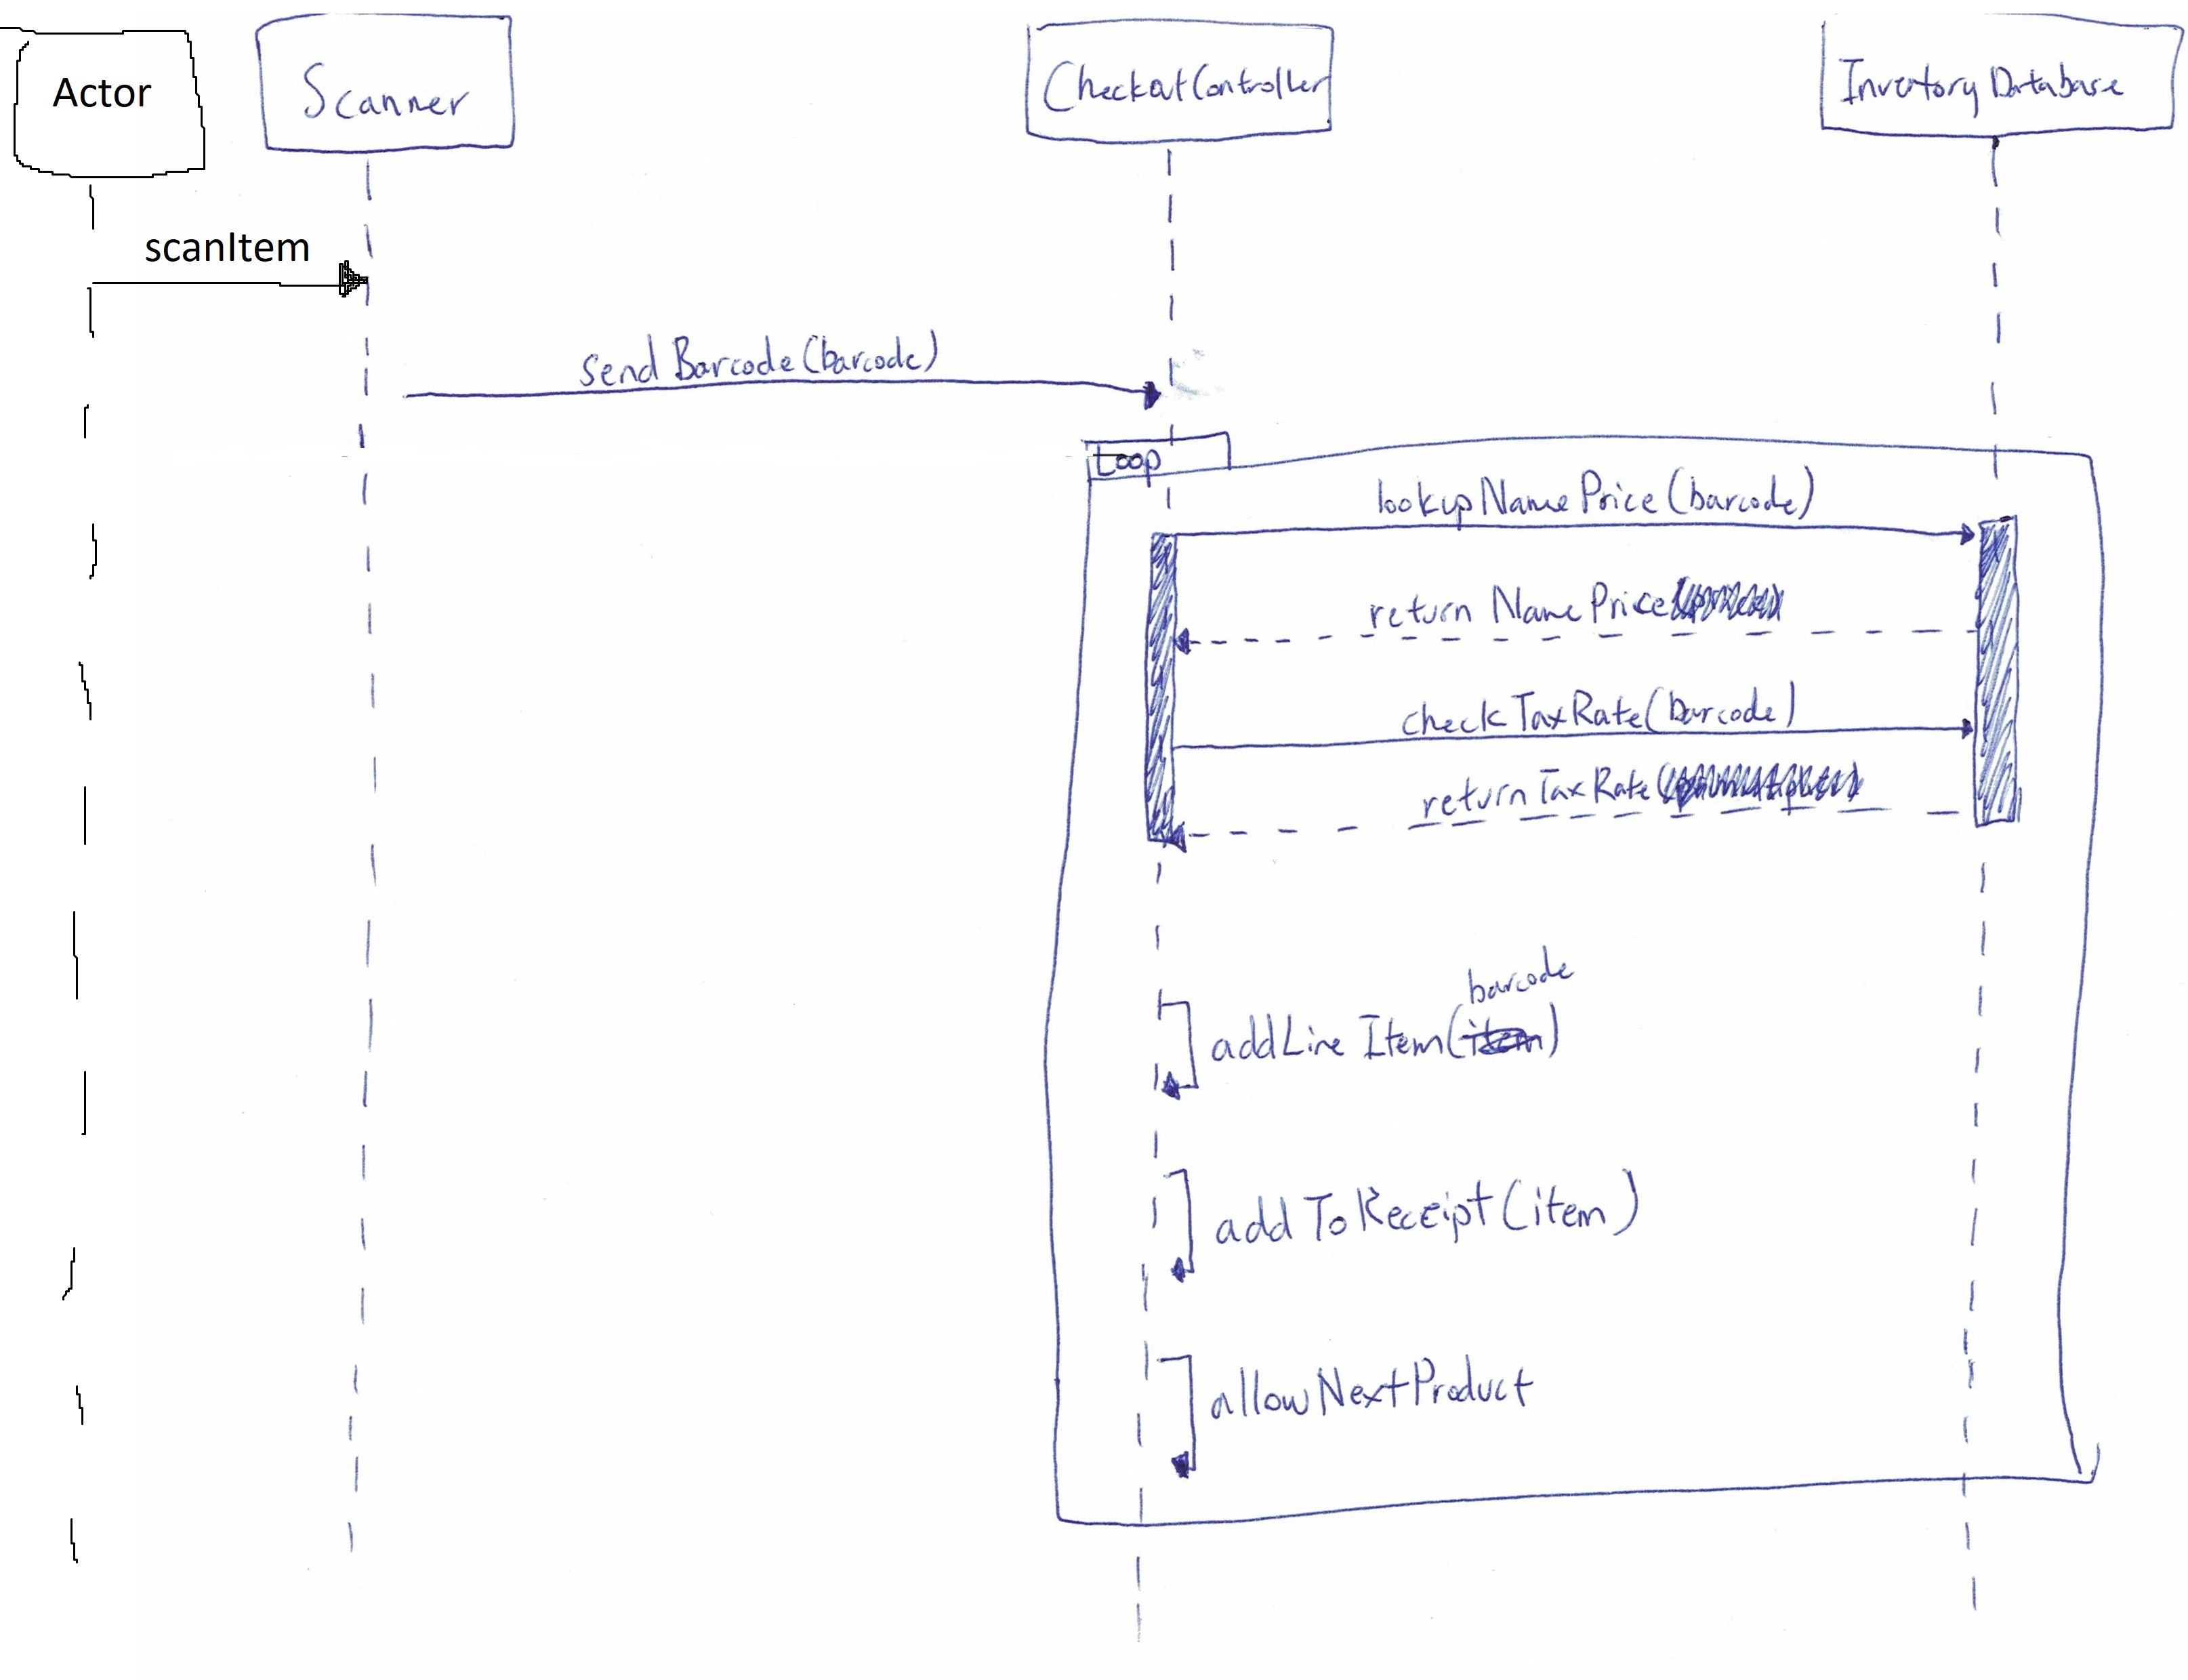 Actor
Scanner
CheckoutController
Inventory Database
scanItem
send Barcode (barcode)
Loop
lookupNamePrice (barcode)
return NamePrice
check TaxRate (barcode)
return TaxRate
barcode
addLine Item (item)
add To Receipt (item)
allowNextProduct